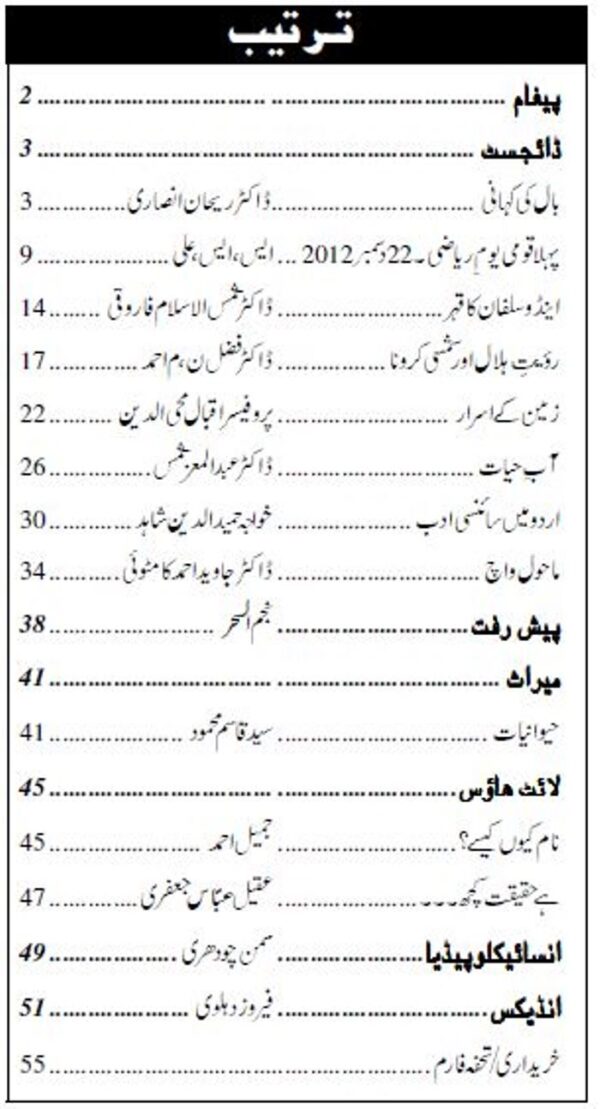 ترتیب
پیغام ........................ 2
ڈائجسٹ ........................ 3
بال کی کہانی ............ ڈاکٹر ریحان انصاری ............ 3
پہلا قومی یومِ ریاضی۔22 دسمبر 2012 ... ایس، ایس، علی ............ 9
اینڈوسلفان کا قہر ............ ڈاکٹر شمس الاسلام فاروقی ........ 14
رؤیتِ ہلال اور شمسی کرونا ............ ڈاکٹر فضل ن، م احمد ............ 17
زمین کے اسرار ............ پروفیسر اقبال محی الدین ............ 22
آبِ حیات ............ ڈاکٹر عبدالمعز شمس ............ 26
اردو میں سائنسی ادب ............ خواجہ حمید الدین شاہد ............ 30
ماحول واچ ............ ڈاکٹر جاوید احمد کامٹوئی ............ 34
پیش رفت ............ نجم السحر ............ 38
میراث ........................ 41
حیوانیات ............ سید قاسم محمود ............ 41
لائٹ ھاؤس ........................ 45
نام کیوں کیسے؟ ............ جمیل احمد ............ 45
ہے حقیقت کچھ۔۔۔۔ ............ عقیل عباس جعفری ............ 47
انسائیکلوپیڈیا ............ سمن چودھری ............ 49
انڈیکس ............ فیروز دہلوی ............ 51
خریداری/تحفہ فارم ........................ 55